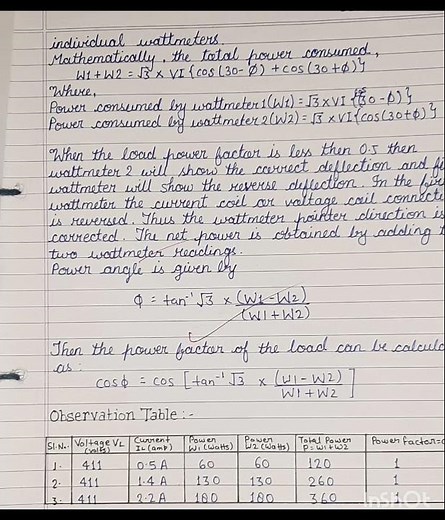 individual wattmeters.
Mathematically, the total power consumed,
W1+W2 = √3 × VI {cos(30-ϕ) + cos(30+ϕ)}
Where,
Power consumed by wattmeter 1(W1) = √3 × VI {(30-ϕ)}
Power consumed by wattmeter 2(W2) = √3 × VI {cos(30+ϕ)}
When the load power factor is less then 0.5 then
wattmeter 2 will show the correct deflection and
wattmeter will show the reverse deflection. In the
wattmeter the current coil or voltage coil connecti
is reversed. Thus the wattmeter pointer direction is
corrected. The net power is obtained by adding t
two wattmeter readings.
Power angle is given by
ϕ = tan⁻¹ √3 × (W1-W2)
(W1+W2)
Then the power factor of the load can be calcula
as:
cosϕ = cos [tan⁻¹ √3 × (W1-W2)]
W1+W2
Observation Table :-
Sl.N. Voltage VL (volts) Current IL (amp) Power W1 (Watts) Power W2 (Watts) Total Power P=W1+W2 Power factor=c
1. 411 0.5 A 60 60 120 1
2. 411 1.4 A 130 130 260 1
3. 411 2.2 A 180 180 360 1
InShOt